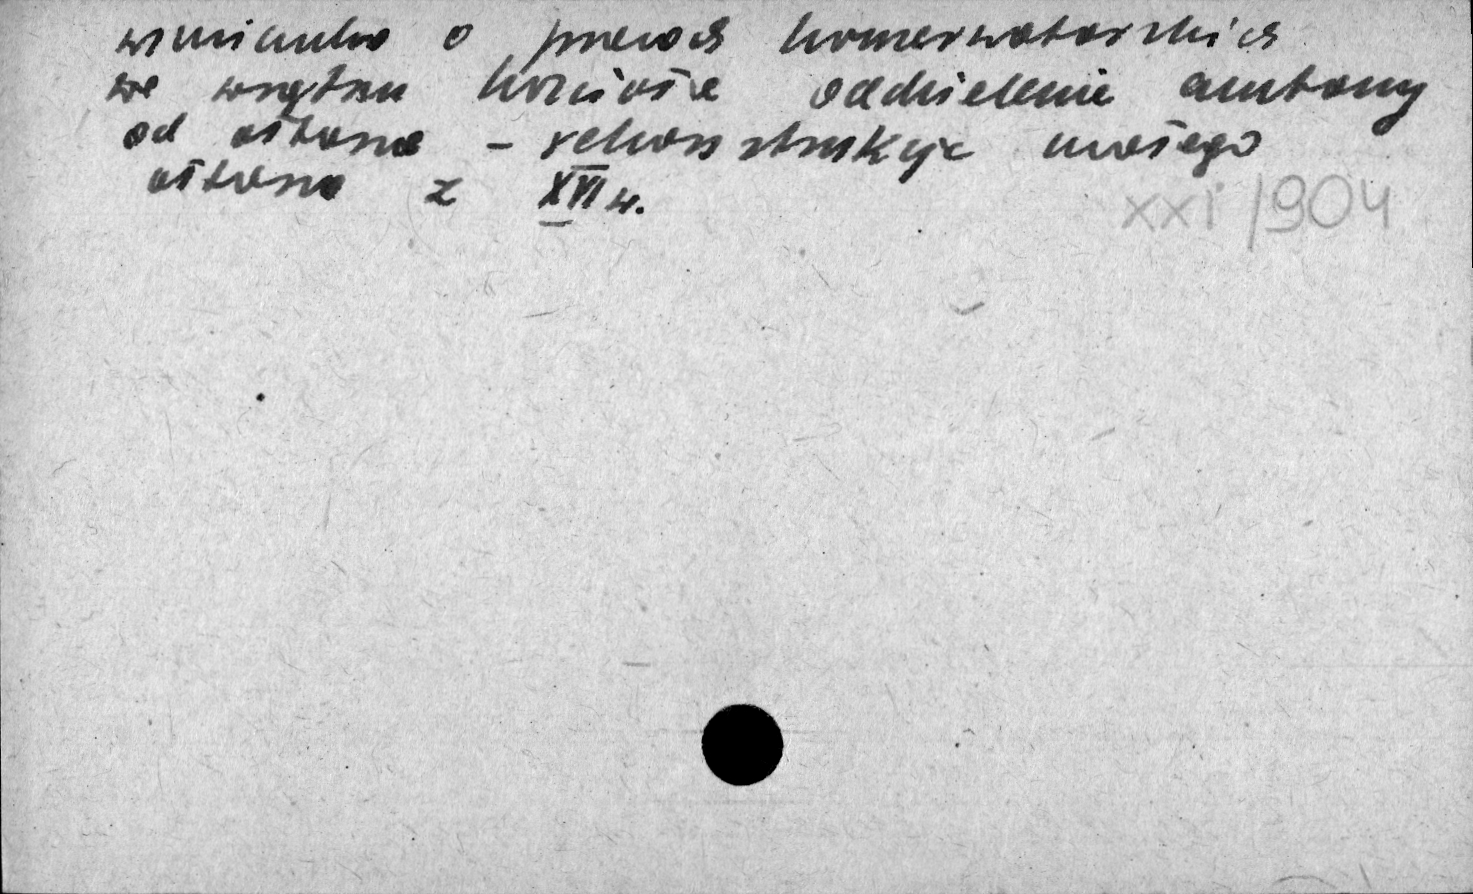 wzmianka o pracach konserwatorskich
we wnętrzu kościoła oddzielenie ambony
od ołtarza – rekonstrukcja małego
ołtarza z XVII w.
XXI/904